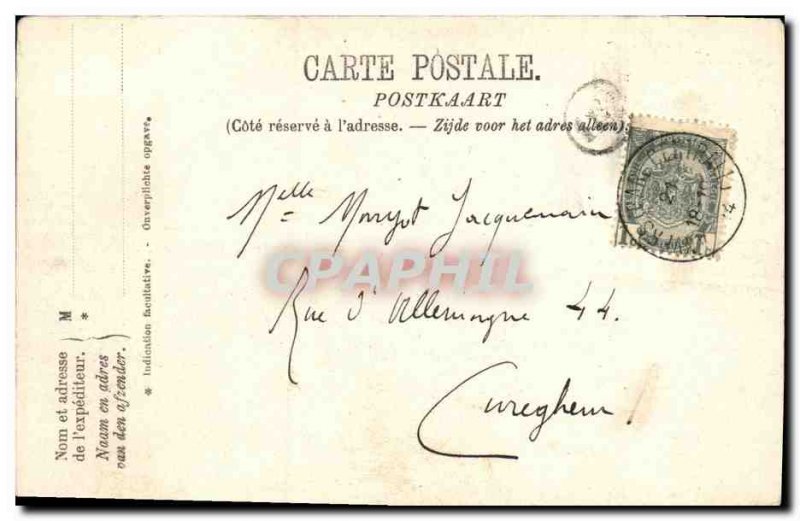 CARTE POSTALE.
POSTKAART
(Côté réservé à l'adresse. — Zijde voor het adres alleen).
Melle Jacquemain
Rue d'Allemagne 44.
Cureghem
CPAPHIL
M
*
Nom et adresse
de l'expéditeur.
Naam en adres
van den afzender.
* Indication facultative. - Onverplichte opgave.